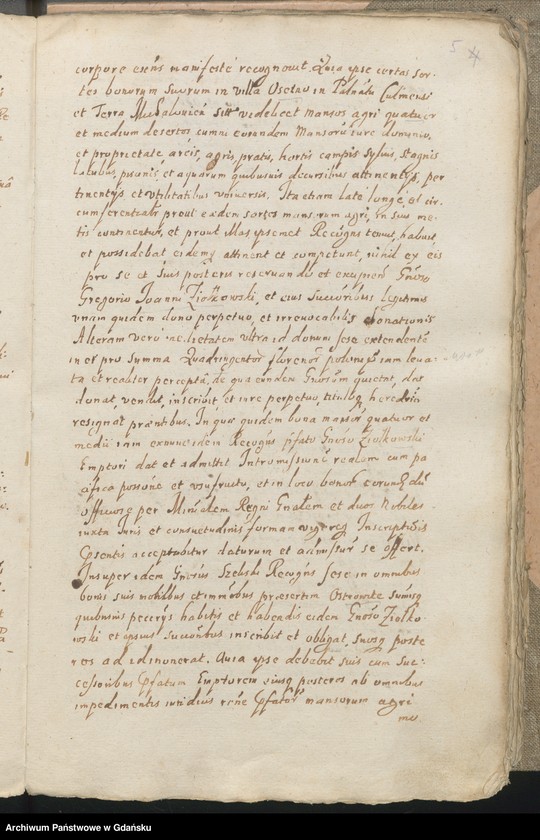 5
corpore existens manifeste recognovit. Quia ipse certas sor-
tes bonorum suorum in villa Osetno in Palnatu Culmensi
et Terra sitt videlicet mansos agri quatuor
et medium desertos cum eorundem Mansorum iure dominio,
et proprietate arcis, agris, pratis, hortis campis sylvis, stagnis
lacubus, et aquarum quibusvis decursibus attinentys, per
tinentys et utilitatibus universis. Ita etiam late longe et cir-
cumferentialr prout eadem sortes mansorum agri, in suis me-
tis continentur, et prout illas ipsemet Recogns tenuit, habuit
et possidebat eidemq attinent et competunt, nihil ex eis
pro se et suis posteris reservando et Gnoso
Gregorio Ioanni Ziołkowski, et eius Succoribus legitimis
unam quidem dono perpetuo, et irrevocabilis donationis
Alteram vero medietatem ultra id donum sese extendente
in et pro Summa Quadringentor florenor polonic iam leva-
ta et realiter percepta, de qua eundem Gnosum quietat, dat
donat, vendit, inscribit et iure perpetuo, tituloq heredrio
resignat prantibus. In qua quidem bona mansor quatuor et
medii iam exnunc idem Recogns pfato Gnoso Ziołkowski
Emptori dat et admittit Intromissione realem cum pa
cifica possone et usufructu, et in loco bonor eorund dū
officiose per Minlalem Regni Gnalem et duos Nobiles
iuxta Iuris et consuetudinis formam Inscriptois
acceptabitur daturum et admissur se offert.
Insuper idem Gnosus Szelski Recogns sese in omnibus
bonis suis mobilibus et immobus praesertim Ostrowite sumisq
quibusvis pecunys habitis et habendis eidem Gnoso Ziołko-
wski et ipsius Succoribus inscribit et obligat, suosq poste
ros ad id inonerat. Quia ipse debebit suis cum Suc-
cessoribus pfatum Emptorem eiusq posteros ab omnibus
impedimentis iuridicis rāne pfator mansorum agri
Archiwum Państwowe w Gdańsku